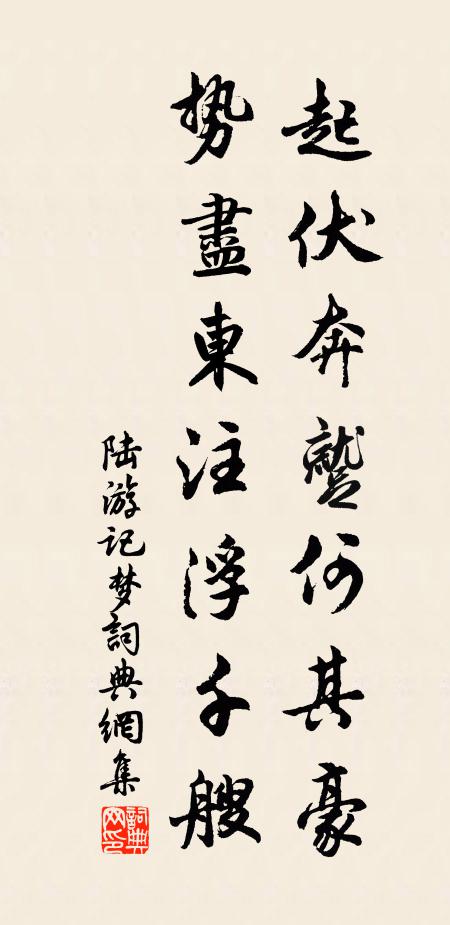 起伏奔蹵何其豪
势盡東注浮千艘
陆游记梦詞典網集
詞典网印